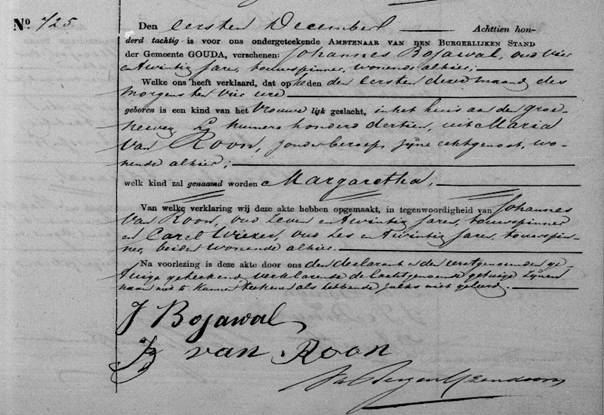 No 725
Den eersten December Achttien hon-
derd tachtig is voor ons ondergeteekende AMBTENAAR VAN DEN BURGERLIJKEN STAND
der Gemeente GOUDA, verschenen: Johannes Bojawal, oud vier
en twintig jaren, touwspinner, wonende alhier;
Welke ons heeft verklaard, dat op heden den eersten dezer maand des
morgens ten vier ure
geboren is een kind van het vrouwelijk geslacht, in het huis aan de
numero honderd dertien, uit Maria
van Roon, zonder beroep, zijne echtgenoot, wo-
nende alhier;
welk kind zal genaamd worden Margaretha,
Van welke verklaring wij deze akte hebben opgemaakt, in tegenwoordigheid van Johannes
van Roon, oud zeven en twintig jaren, touwspinner
en Carel oud zes en twintig jaren, touwspin-
ner, beiden wonende alhier.
Na voorlezing is deze akte door ons den declarant en de eerstgenoemden ge-
tuige geteekend verklarende de laatstgenoemde getuige zijnen
naam niet te kunnen teekenen als hebbende zulks niet geleerd.
J Bojawal
J van Roon